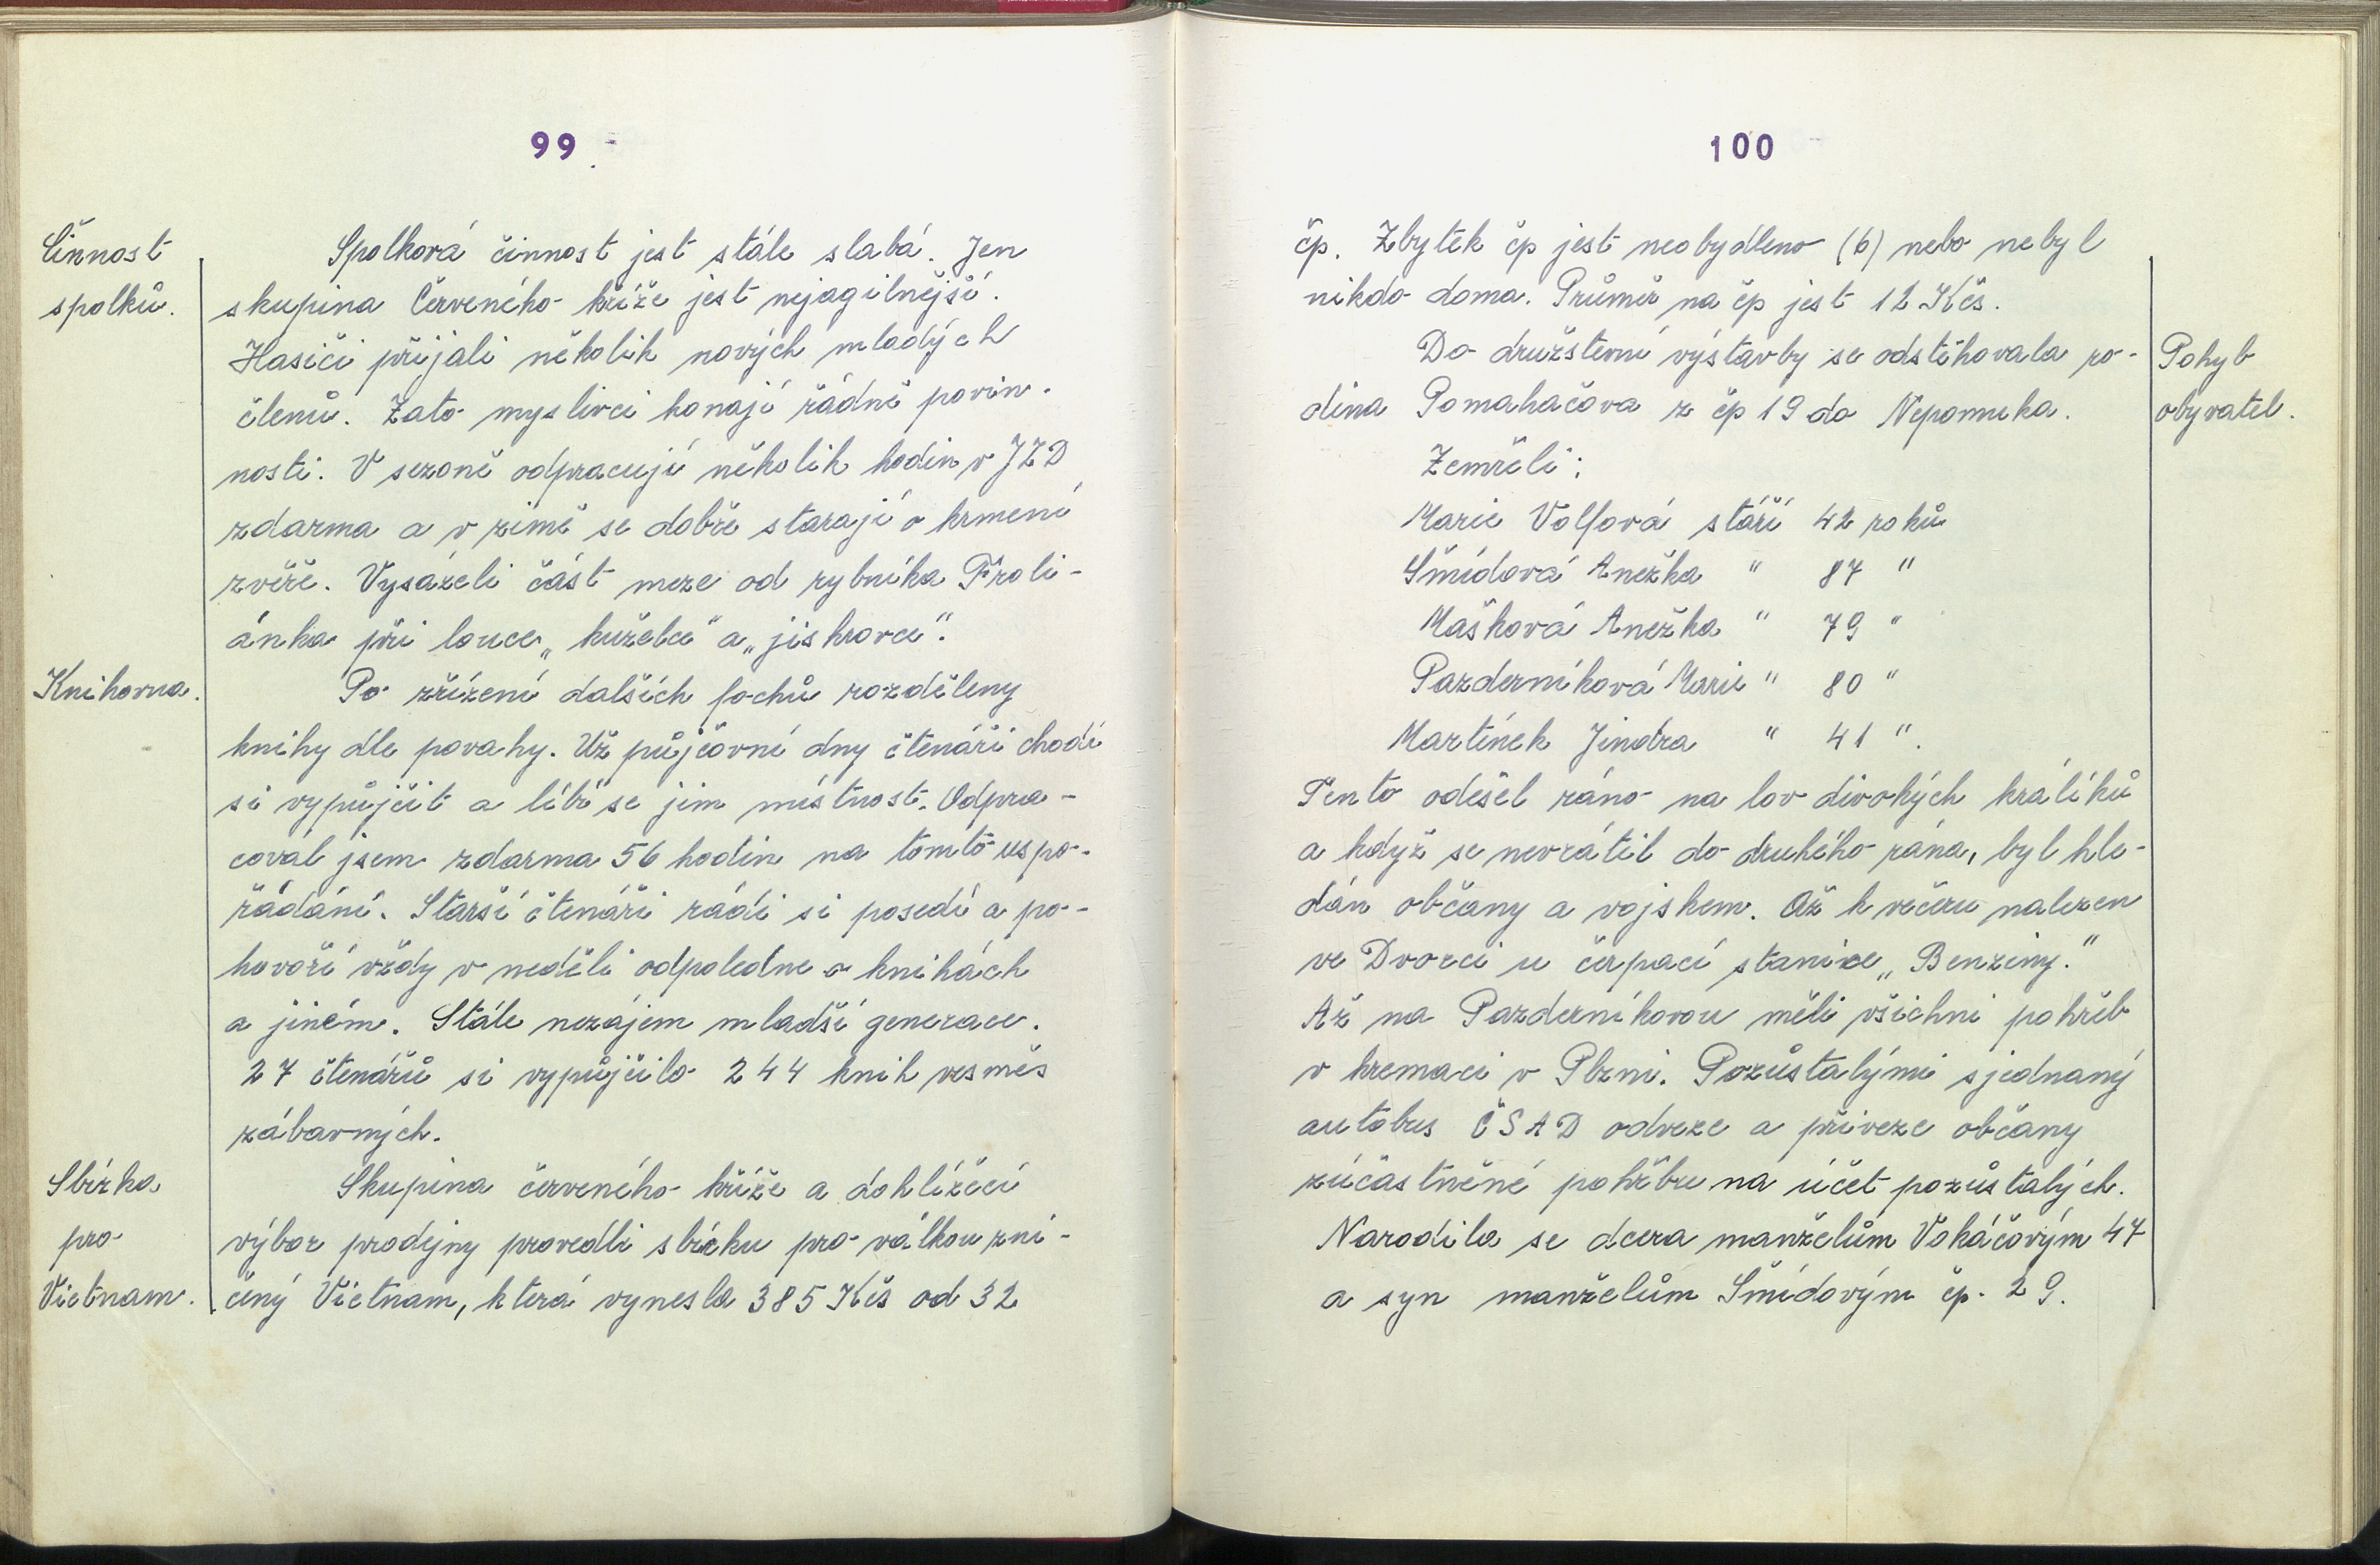 99
Činnost
spolků.
Spolková činnost jest stále slabá. Jen
skupina Červeného kříže jest nejagilnější.
Hasiči přijali několik nových mladých
členů. Zato myslivci konají řádně povin-
nosti. V sezoně odpracují několik hodin v JZD
zdarma a v zimě se dobře starají o krmení
zvěře. Vysázeli část meze od rybníka Froli-
ánka při louce „kuželce" a „jiskrovce".
Knihovna.
Po zřízení dalších fochů rozděleny
knihy dle povahy. Už půjčovní dny čtenáři chodí
si vypůjčit a líbí se jim místnost. Odpra-
coval jsem zdarma 56 hodin na tomto uspo-
řádání. Starší čtenáři rádi si posedí a po-
hovoří vždy v neděli odpoledne o knihách
a jiném. Stále nezájem mladší generace.
27 čtenářů si vypůjčilo 244 knih vesměs
zábavných.
Sbírka
pro
Vietnam.
Skupina červeného kříže a dohlížecí
výbor prodejny provedli sbírku pro válkou zni-
čený Vietnam, která vynesla 385 Kčs od 32
100
čp. Zbytek čp jest neobydleno (6) nebo nebyl
nikdo doma. Průměr na čp jest 12 Kčs.
Pohyb
obyvatel.
Do družstevní výstavby se odstěhovala ro-
dina Pomahačova z čp 19 do Nepomuka.
Zemřeli:
Marie Volfová stáří 42 roků
Šmídová Anežka " 87 "
Mašková Anežka " 79 "
Pazderníková Marie " 80 "
Martínek Jindra " 41 ".
Tento odešel ráno na lov divokých králíků
a když se nevrátil do druhého rána, byl hle-
dán občany a vojskem. Až k večeru nalezen
ve Dvorci u čerpací stanice „Benziny."
Až na Pazderníkovou měli všichni pohřeb
v kremaci v Plzni. Pozůstalými sjednaný
autobus ČSAD odveze a přiveze občany
zúčastněné pohřbu na účet pozůstalých.
Narodila se dcera manželům Vokáčovým 47
a syn manželům Šmídovým čp. 29.